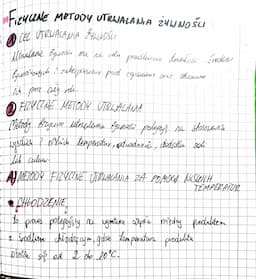 FIZYCZNE METODY UTRWALANIA ŻYWNOŚCI
① CEL UTRWALANIA ŻYWNOŚCI
Utrwalanie żywności ma na celu przedłużenie trwałości środków
żywnościowych i zabezpieczenie przed
ich przez cały rok.
② FIZYCZNE METODY UTRWALANIA
Metody fizyczne utrwalania żywności polegają na stosowaniu
wysokich i niskich temperatur, odwadnianiu, dodatku soli
lub cukru.
A) METODY FIZYCZNE UTRWALANIA ZA POMOCĄ NISKICH
TEMPERATUR
• CHŁODZENIE
To proces polegający na wymianie ciepła między produktem
a środkiem chłodzącym, gdzie temperatura produktu
waha się od 2 do 10°C.